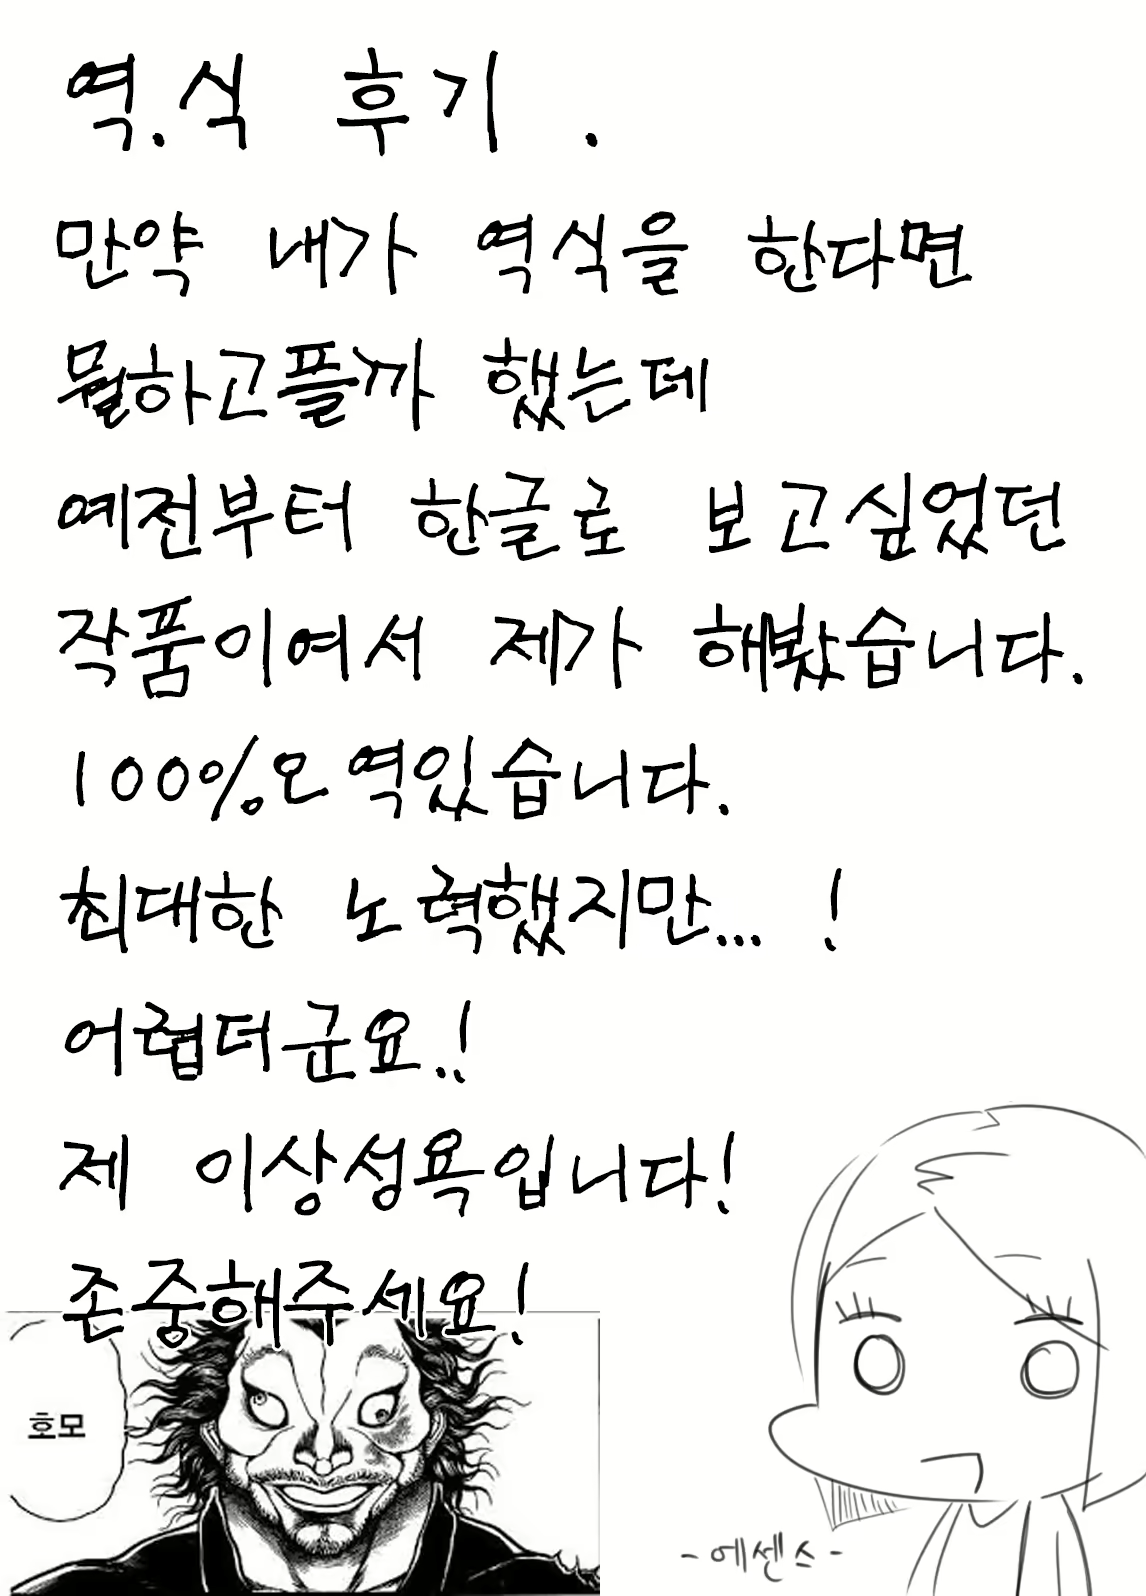 역.식 후기 .
만약 내가 역식을 한다면
뭘하고플까 했는데
예전부터 한글로 보고싶었던
작품이여서 제가 해봤습니다.
100%오역있습니다.
최대한 노력했지만... !
어렵더군요..!
제 이상성욕입니다!
존중해주세요!
호모
-에센스-